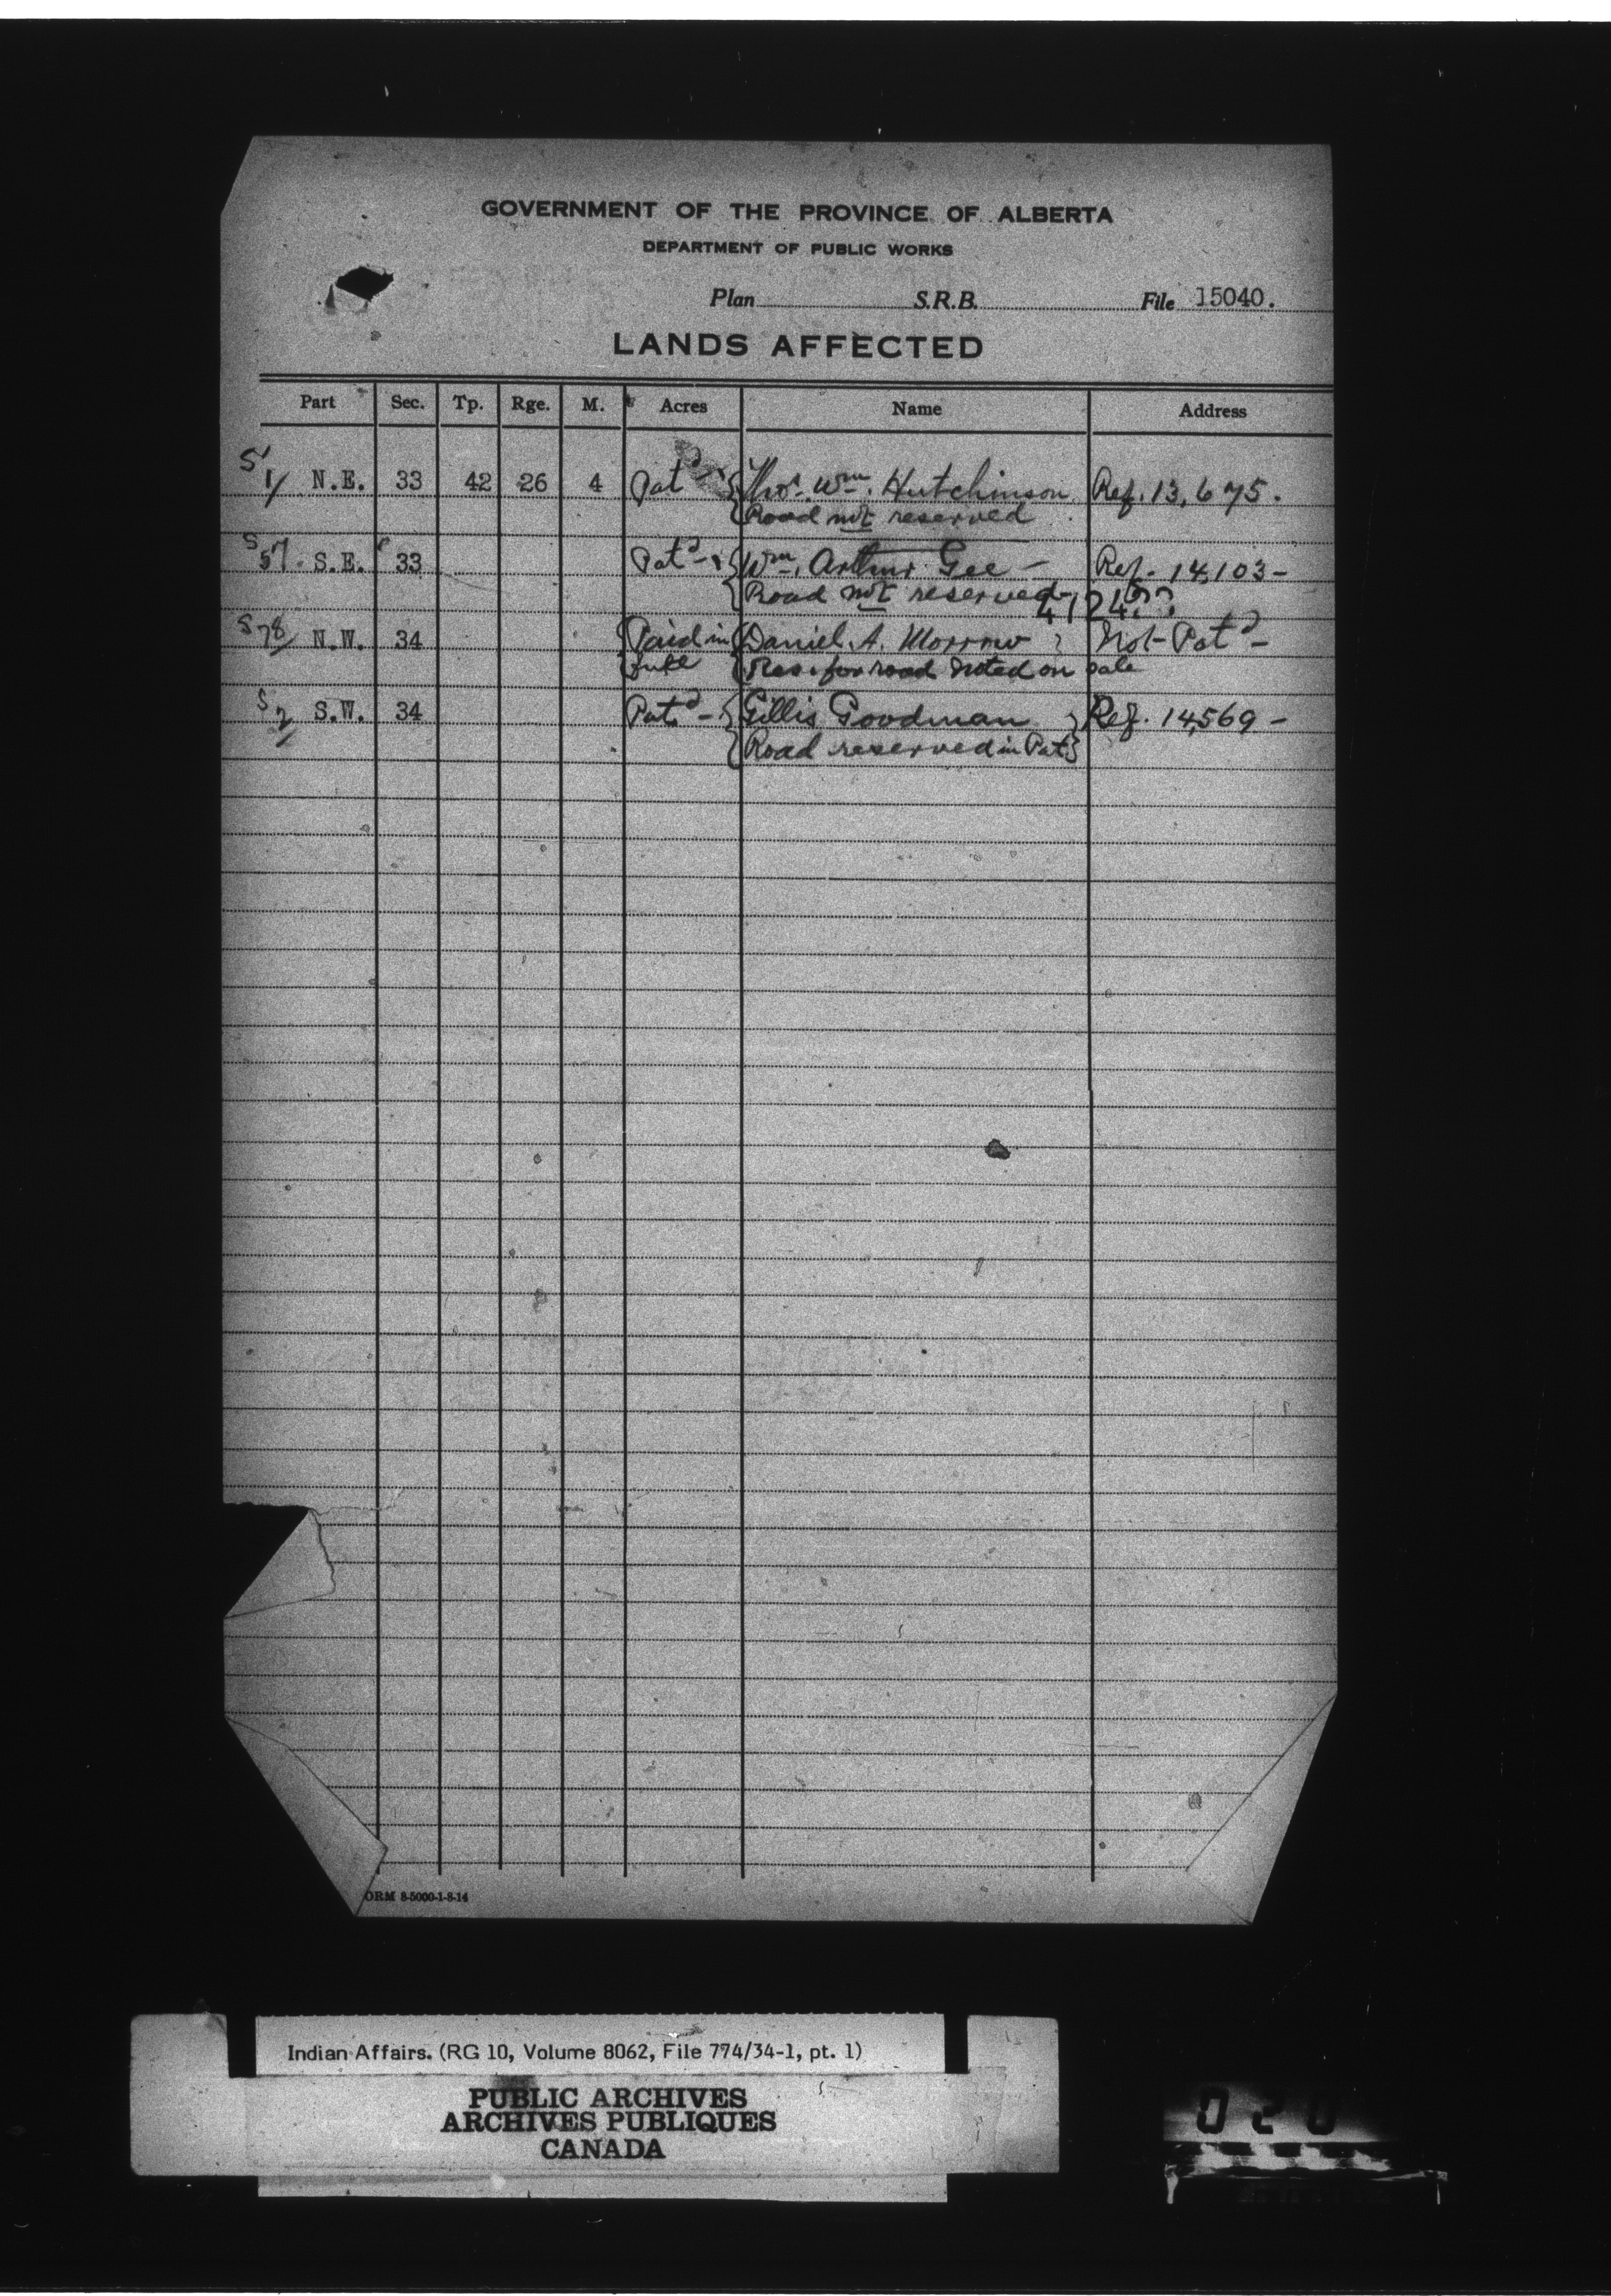 GOVERNMENT OF THE PROVINCE OF ALBERTA
DEPARTMENT OF PUBLIC WORKS
Plan S.R.B. File 15040.
LANDS AFFECTED
Part Sec. Tp. Rge. M. Acres Name Address
S 1/ N.E. 33 42 26 4 Patd Thos. Wm. Hutchinson Ref. 13,675.
Road not reserved
S 57. S.E. 33 Patd - Wm. Arthur Gee - Ref. 14,103 -
Road not reserved
S 78/ N.W. 34 Paid in Daniel A. Morrow Not Patd -
full Res. for road noted on sale
S 2/ S.W. 34 Patd - Gillis Goodman Ref. 14,569 -
Road reserved in Pat
ORM 8-5000-1-8-14
Indian Affairs. (RG 10, Volume 8062, File 774/34-1, pt. 1)
PUBLIC ARCHIVES
ARCHIVES PUBLIQUES
CANADA
020